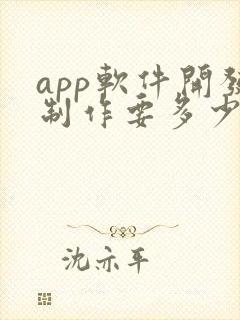 app軟件開發
制作要多少
沈亦平